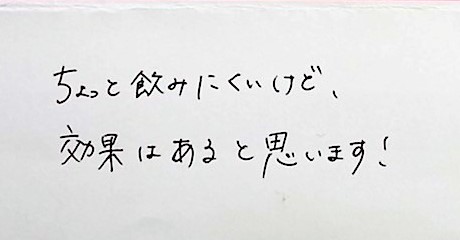 ちょっと飲みにくいけど、
効果はあると思います!